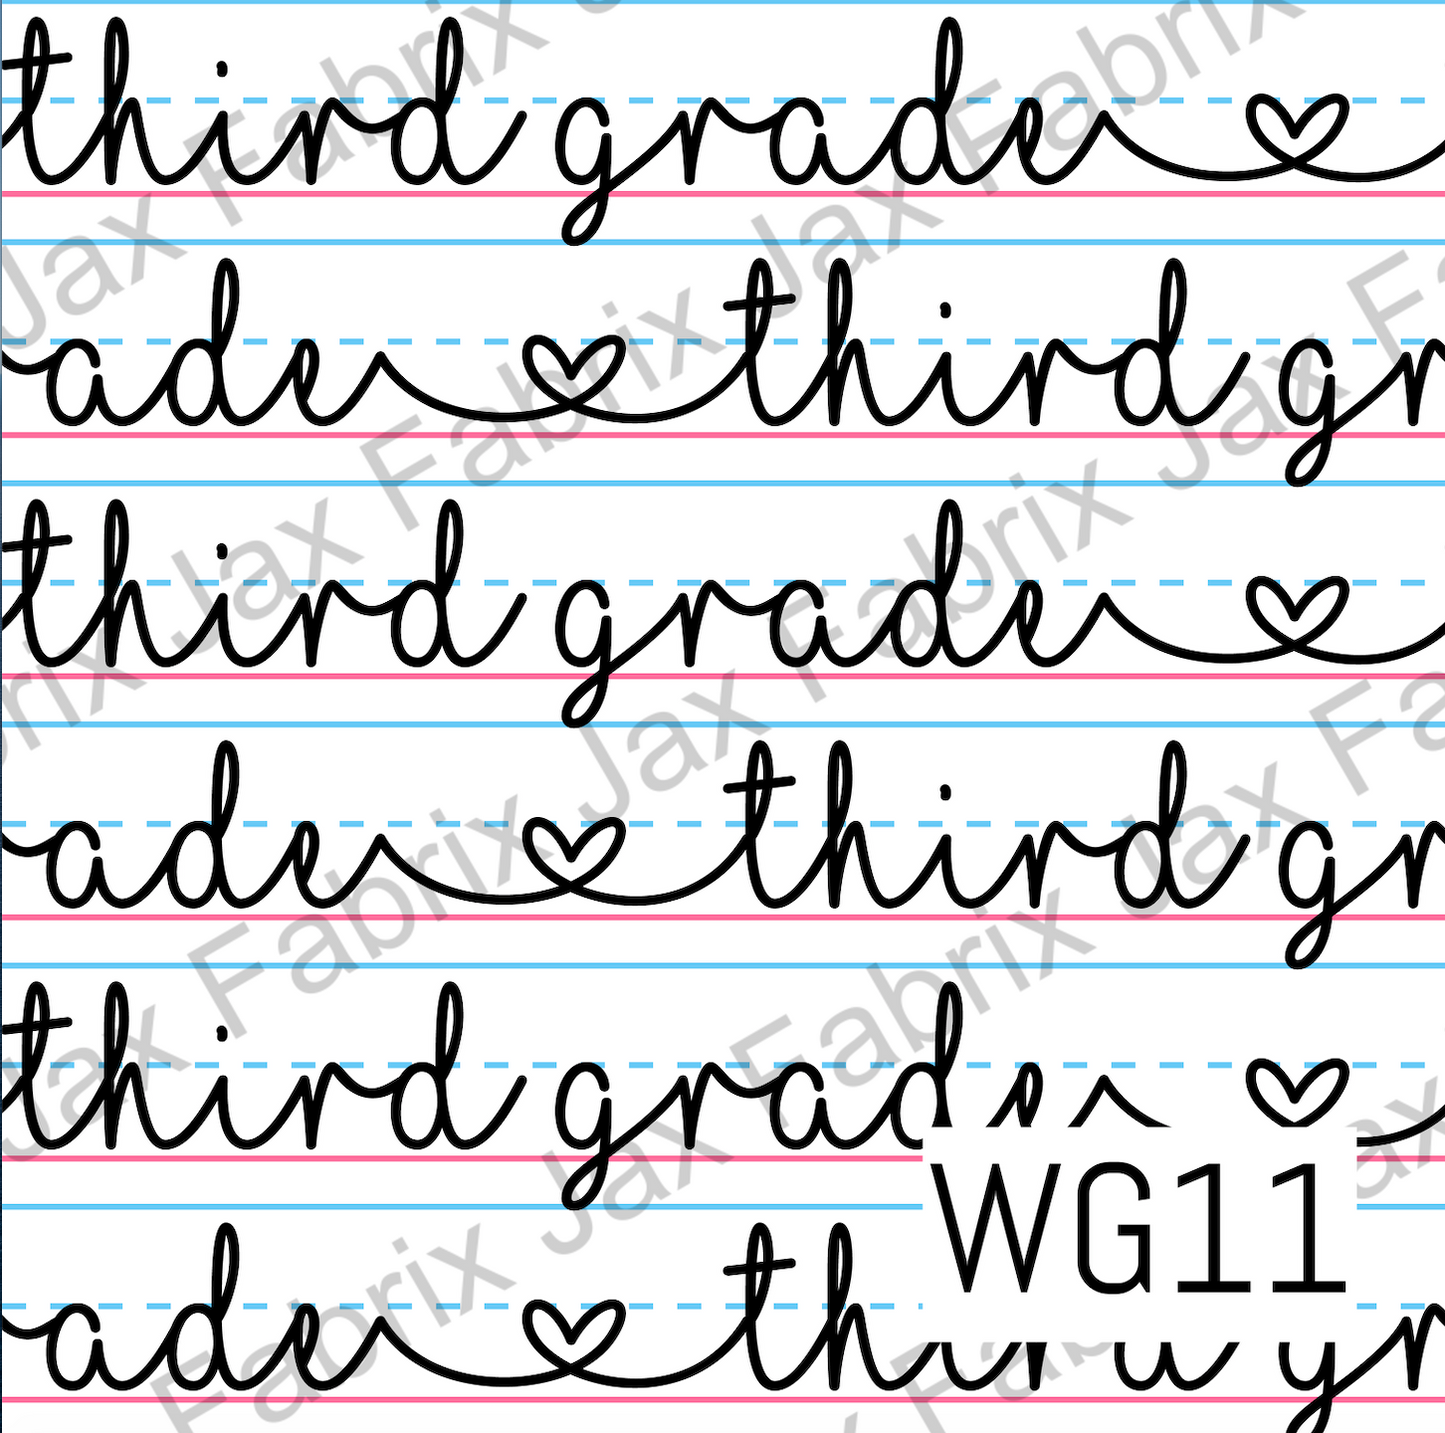 third grade
ade third gr
third grade
ade third gr
third grade
WG11
ade third gr
Jax Fabrix Jax Fabrix Jax Fabrix